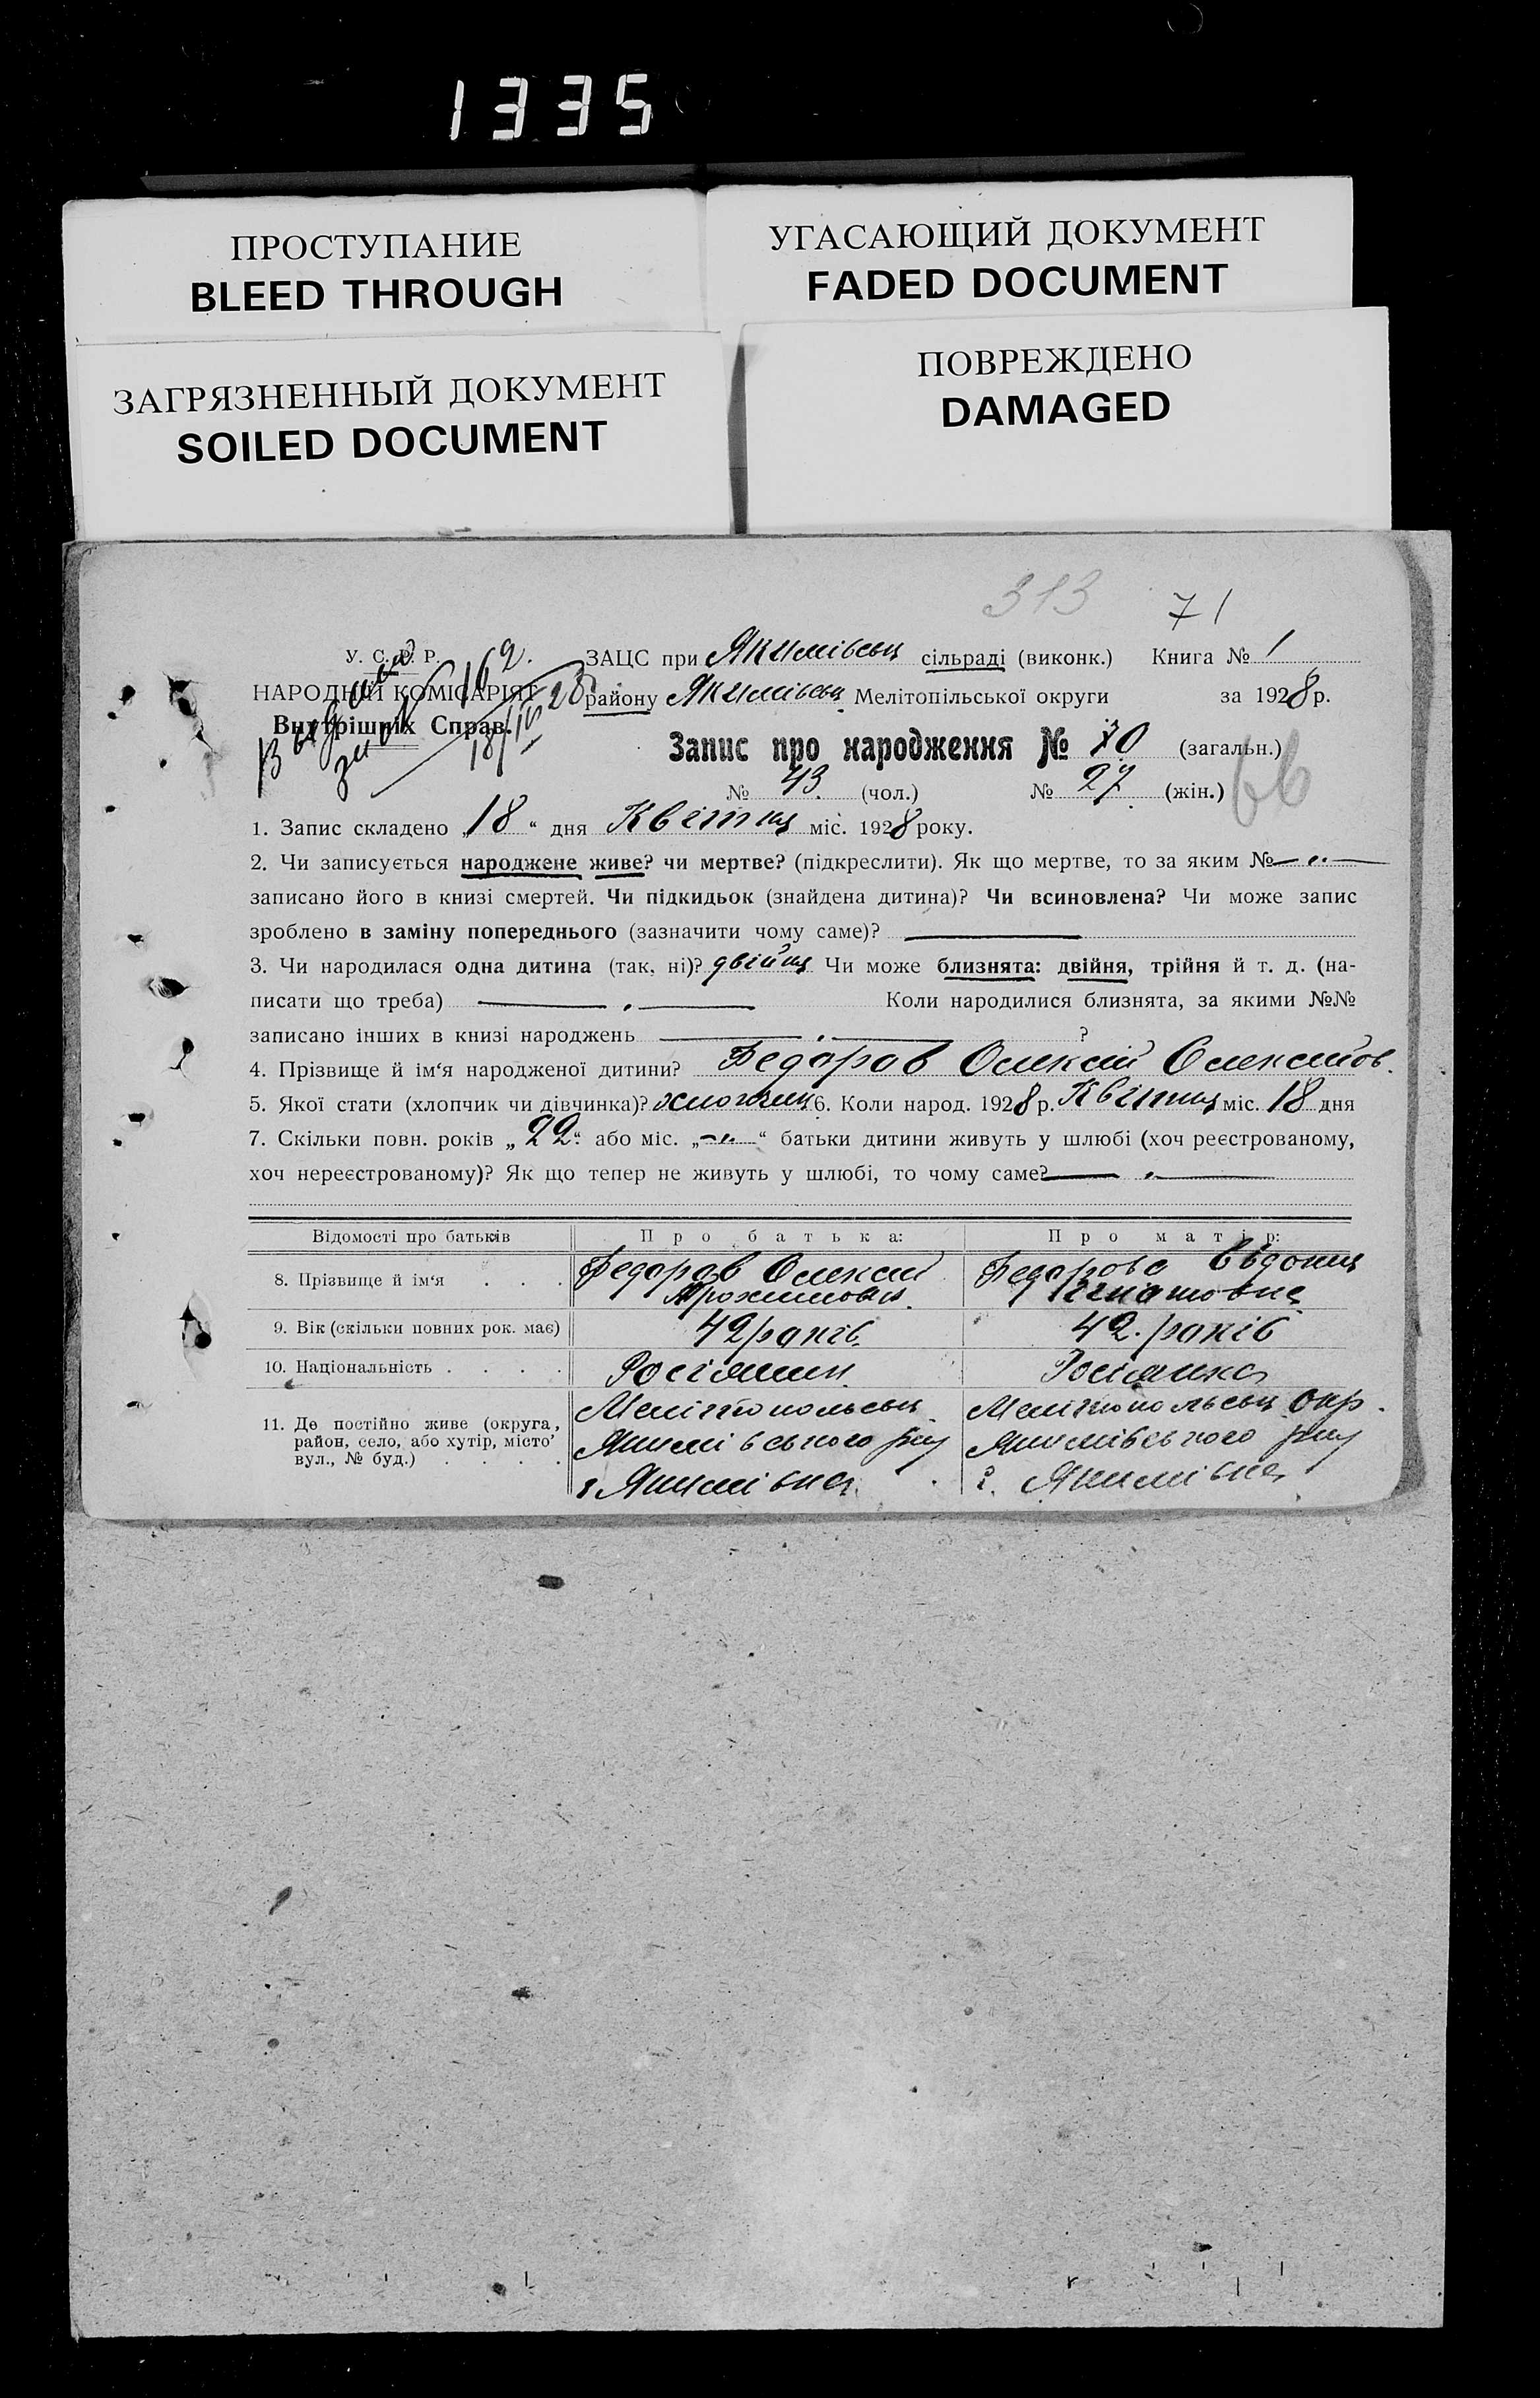 1335
ПРОСТУПАНИЕ
BLEED THROUGH
УГАСАЮЩИЙ ДОКУМЕНТ
FADED DOCUMENT
ЗАГРЯЗНЕННЫЙ ДОКУМЕНТ
SOILED DOCUMENT
ПОВРЕЖДЕНО
DAMAGED
313 71
У. С. Р. Р.
НАРОДНІЙ КОМІСАРІЯТ
Внутрішніх Справ.
162.
18/IV 28
ЗАЦС при Якимівськ сільраді (виконк.) Книга № 1
району Якимівськ Мелітопільської округи за 1928 р.
Запис про народження № 70 (загальн.)
№ 43 (чол.) № 27 (жін.)
66
1. Запис складено „18“ дня Квітня міс. 1928 року.
2. Чи записується народжене живе? чи мертве? (підкреслити). Як що мертве, то за яким № — „ —
записано його в книзі смертей. Чи підкидьок (знайдена дитина)? Чи всиновлена? Чи може запис
зроблено в заміну попереднього (зазначити чому саме)? —
3. Чи народилася одна дитина (так, ні)? двійня Чи може близнята: двійня, трійня й т. д. (на-
писати що треба) Коли народилися близнята, за якими №№
записано інших в книзі народжень ?
4. Прізвище й ім‘я народженої дитини? Федоров Олексій Олексійов.
5. Якої стати (хлопчик чи дівчинка)? 6. Коли народ. 1928 р. Квітня міс. 18 дня
7. Скільки повн. років „22“ або міс. „ — “ батьки дитини живуть у шлюбі (хоч реєстрованому,
хоч нереєстрованому)? Як що тепер не живуть у шлюбі, то чому саме?
Відомості про батьків Про батька: Про матір:
8. Прізвище й ім‘я . . . Федоров Олексій Федорова Евдокия
Игнатовна
9. Вік (скільки повних рок. має) 42 років 42. років
10. Національність . . . . Росіянин Росіянка
11. Де постійно живе (округа, Мелітопольськ Мелітопольськ окр.
район, село, або хутір, місто’ Якимівського р-ну Якимівського р-ну
вул., № буд.) . . . . с Якимівка с. Якимівка